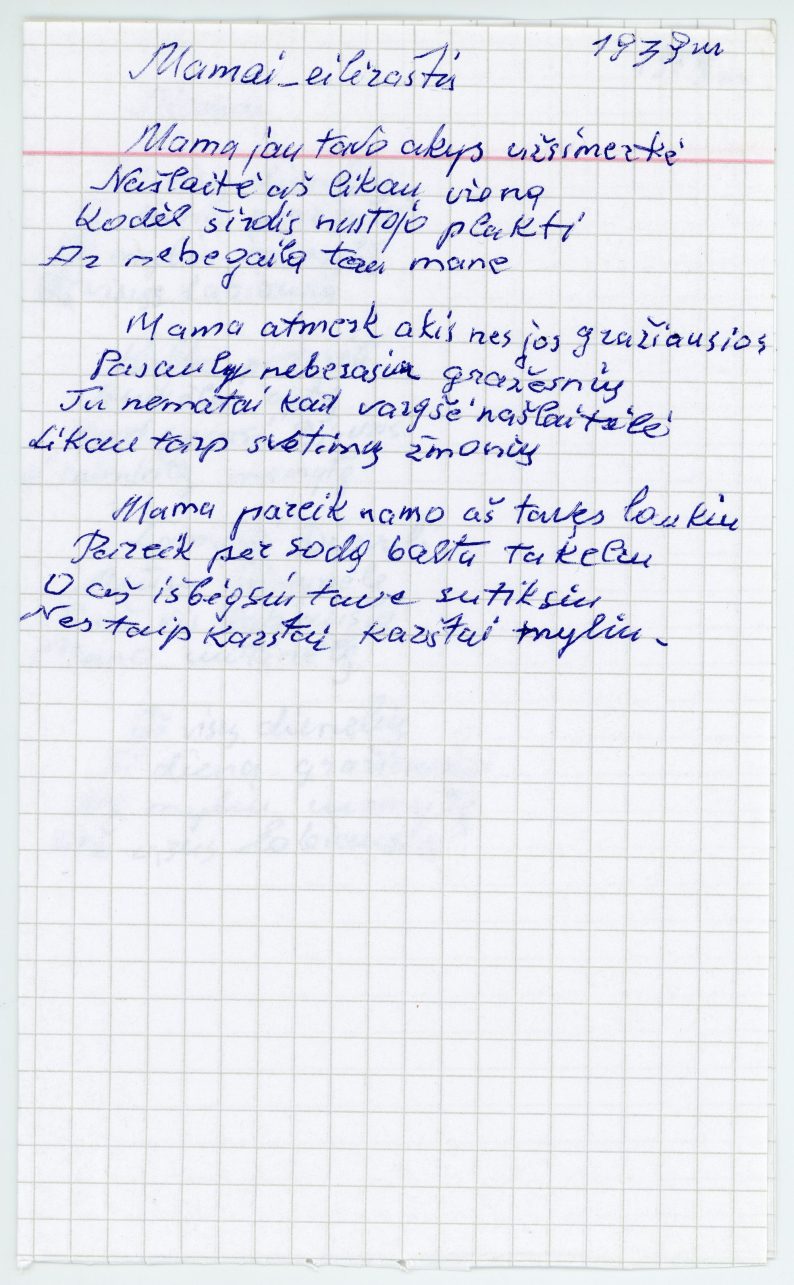 1939 m
Mamai - eilėraštis
Mama jau tavo akys užsimerkė
Našlaitė aš likau viena
Kodėl širdis nustojo plakti
Ar nebegaila tau manę
Mama atmerk akis nes jos gražiausios
Pasauly neberasiu gražesnių
Tu nematai kad vargšė našlaitėlė
Likau tarp svetimų žmonių
Mama pareik namo aš tavęs laukiu
Pareik per sodą baltu takeliu
O aš išbėgsiu tave sutiksiu
Nes taip karštai karštai myliu -